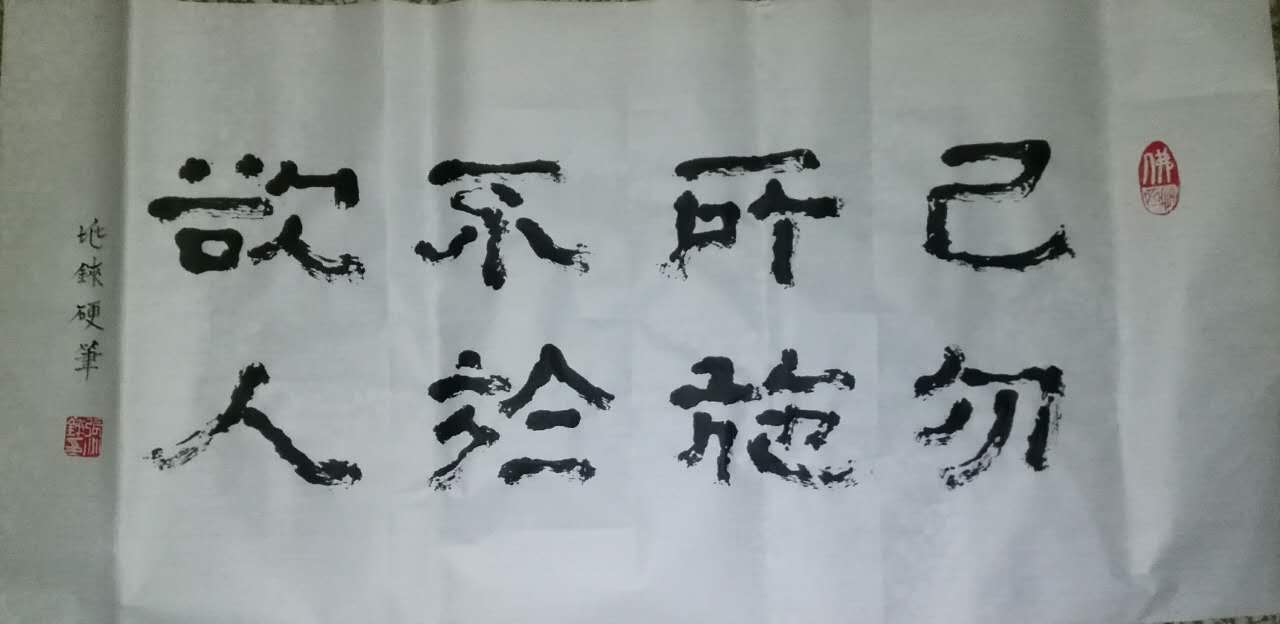 佛
己所不欲
勿施於人
硬筆